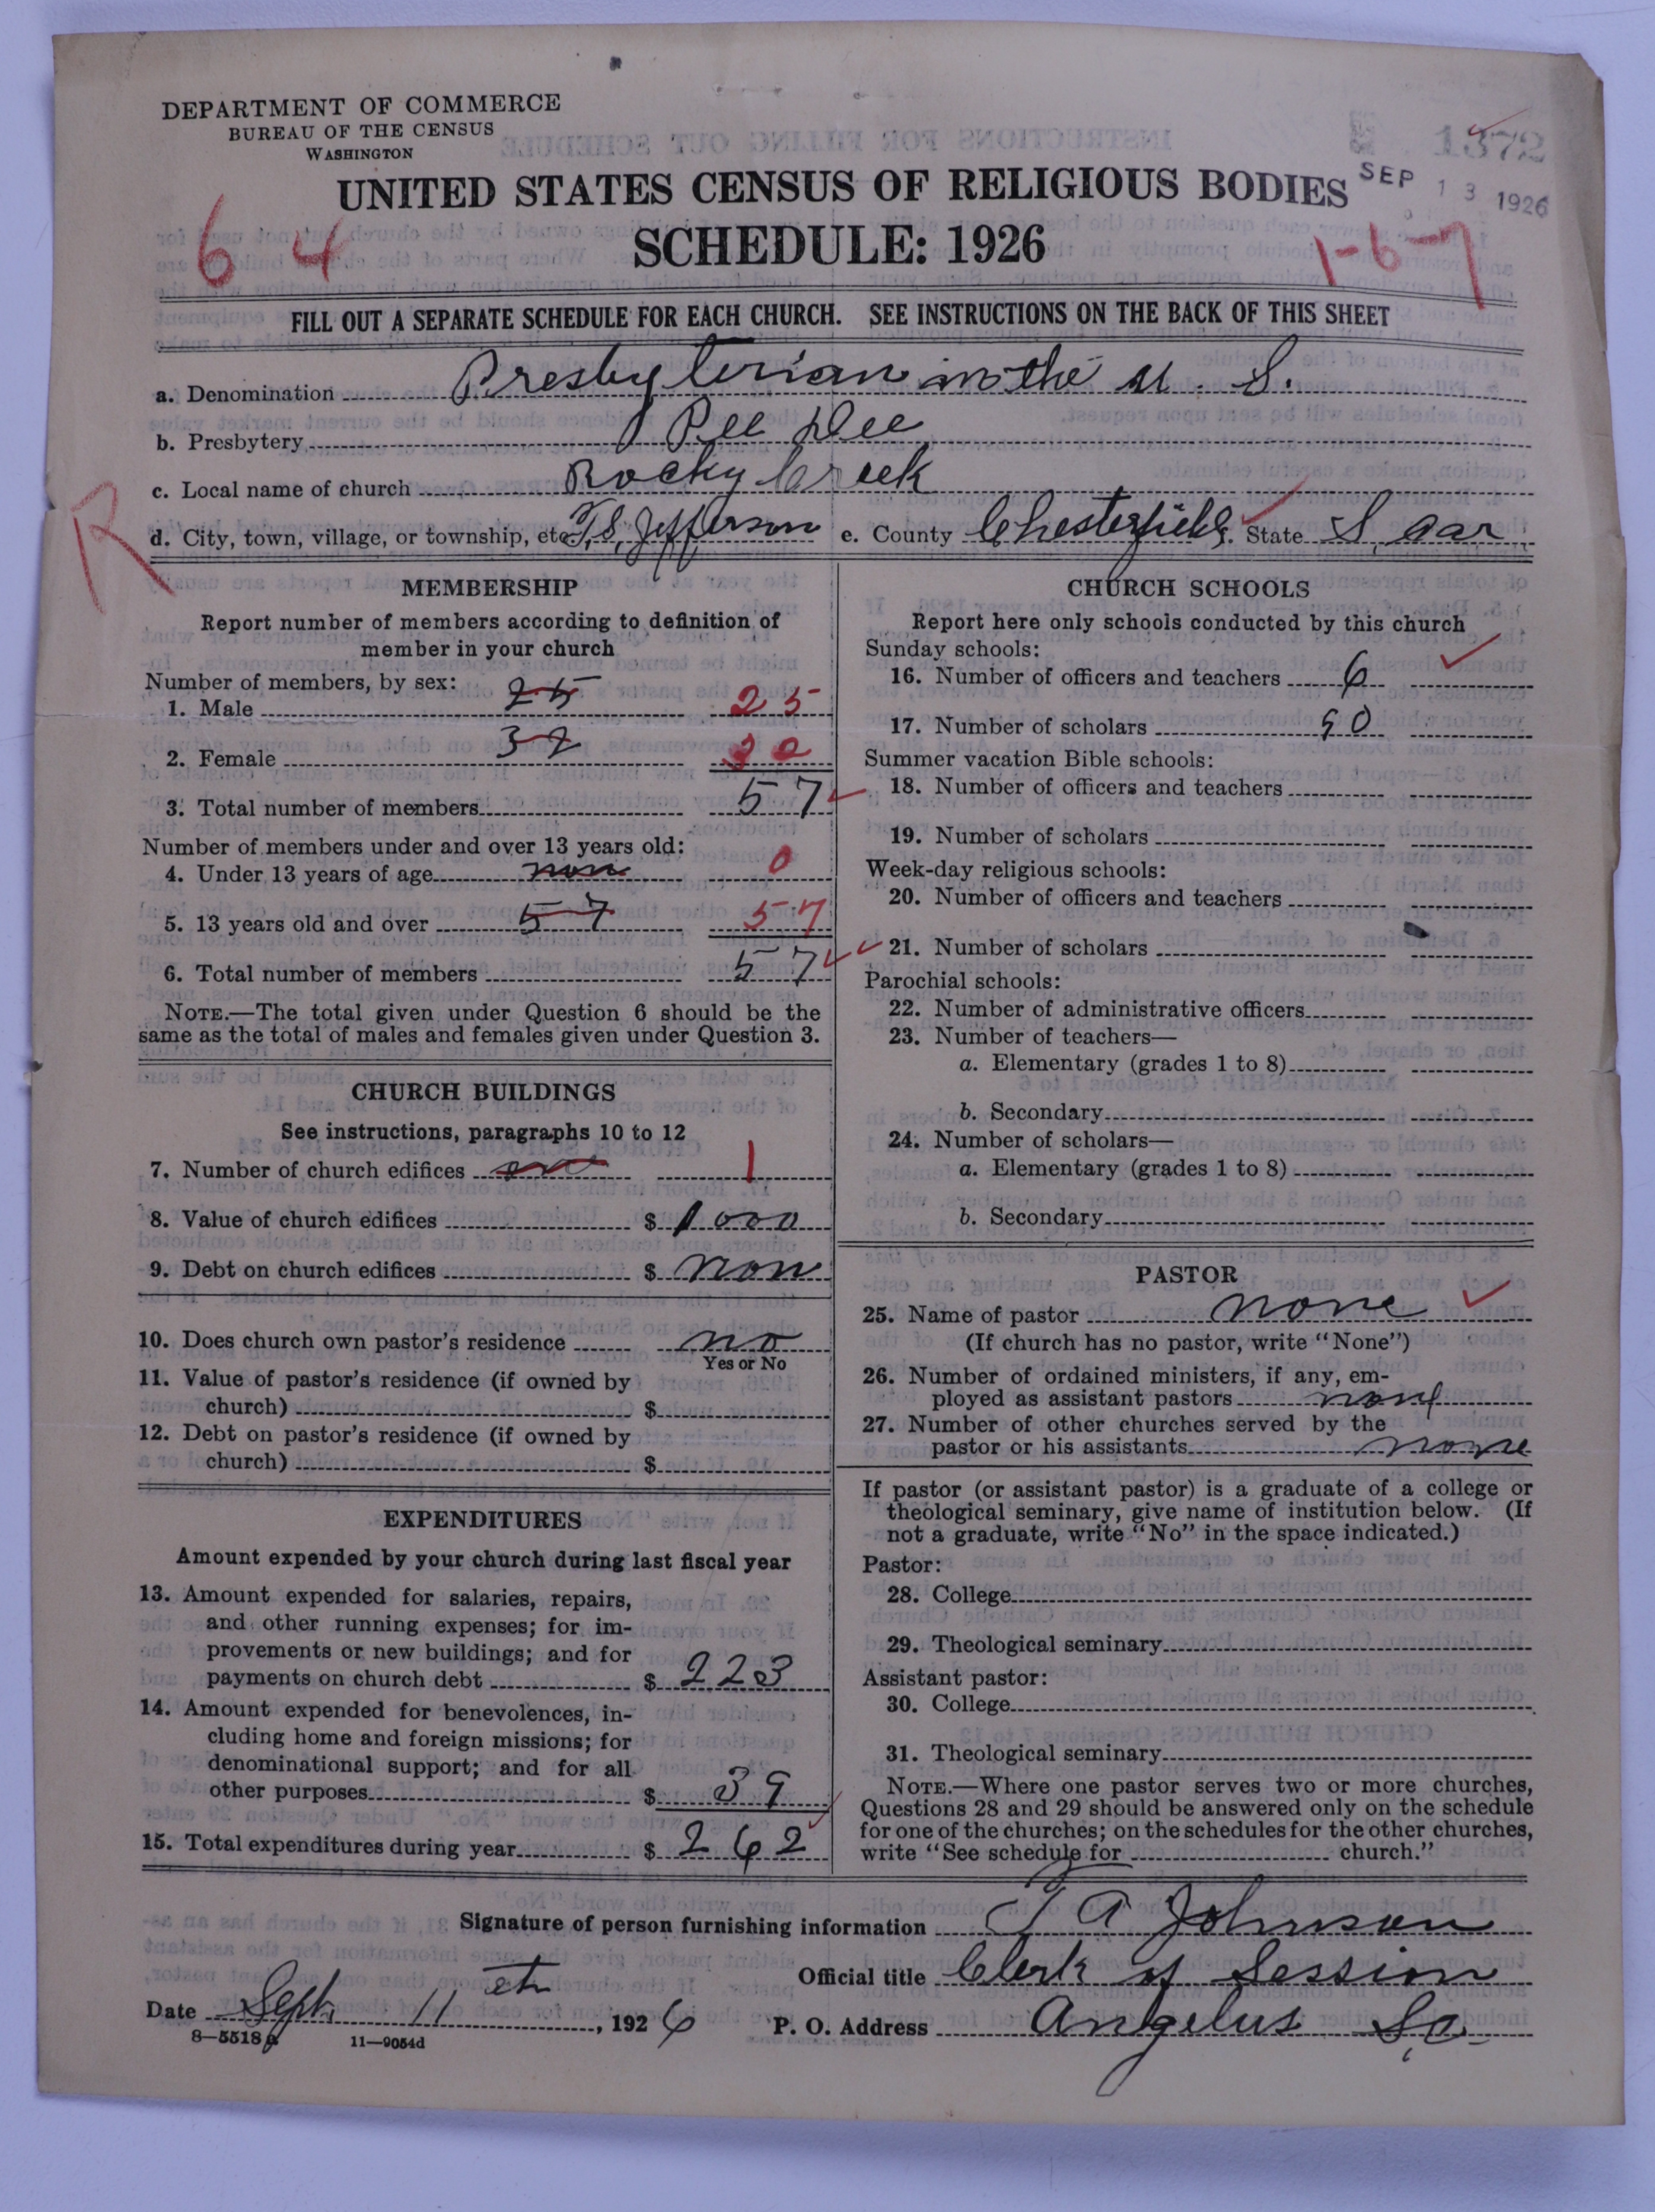 DEPARTMENT OF COMMERCE
BUREAU OF THE CENSUS
WASHINGTON
1372
SEP 13 1926
UNITED STATES CENSUS OF RELIGIOUS BODIES
SCHEDULE: 1926
6 4
1-6-7
FILL OUT A SEPARATE SCHEDULE FOR EACH CHURCH. SEE INSTRUCTIONS ON THE BACK OF THIS SHEET
a. Denomination Presbyterian in the U. S.
b. Presbytery Pee Dee
c. Local name of church Rocky Creek
R
d. City, town, village, or township, etc. Jefferson e. County Chesterfield State S. Car
MEMBERSHIP
Report number of members according to definition of
member in your church
Number of members, by sex:
1. Male 25 25
2. Female 32
3. Total number of members 57
Number of members under and over 13 years old:
4. Under 13 years of age non 0
5. 13 years old and over 57 57
6. Total number of members 57
NOTE.—The total given under Question 6 should be the
same as the total of males and females given under Question 3.
CHURCH BUILDINGS
See instructions, paragraphs 10 to 12
7. Number of church edifices one 1
8. Value of church edifices $ 1000
9. Debt on church edifices $ non
10. Does church own pastor's residence no
Yes or No
11. Value of pastor's residence (if owned by
church) $
12. Debt on pastor's residence (if owned by
church) $
EXPENDITURES
Amount expended by your church during last fiscal year
13. Amount expended for salaries, repairs,
and other running expenses; for im-
provements or new buildings; and for
payments on church debt $ 223
14. Amount expended for benevolences, in-
cluding home and foreign missions; for
denominational support; and for all
other purposes $ 39
15. Total expenditures during year $ 262
CHURCH SCHOOLS
Report here only schools conducted by this church
Sunday schools:
16. Number of officers and teachers 6
17. Number of scholars 90
Summer vacation Bible schools:
18. Number of officers and teachers
19. Number of scholars
Week-day religious schools:
20. Number of officers and teachers
21. Number of scholars
Parochial schools:
22. Number of administrative officers
23. Number of teachers—
a. Elementary (grades 1 to 8)
b. Secondary
24. Number of scholars—
a. Elementary (grades 1 to 8)
b. Secondary
PASTOR
25. Name of pastor none
(If church has no pastor, write "None")
26. Number of ordained ministers, if any, em-
ployed as assistant pastors none
27. Number of other churches served by the
pastor or his assistants none
If pastor (or assistant pastor) is a graduate of a college or
theological seminary, give name of institution below. (If
not a graduate, write "No" in the space indicated.)
Pastor:
28. College
29. Theological seminary
Assistant pastor:
30. College
31. Theological seminary
NOTE.—Where one pastor serves two or more churches,
Questions 28 and 29 should be answered only on the schedule
for one of the churches; on the schedules for the other churches,
write "See schedule for church."
Signature of person furnishing information T A Johnson
Official title Clerk of Session
Date Sept. 11 eth, 1926
P. O. Address Angelus S,C.
8—5518a 11—9054d